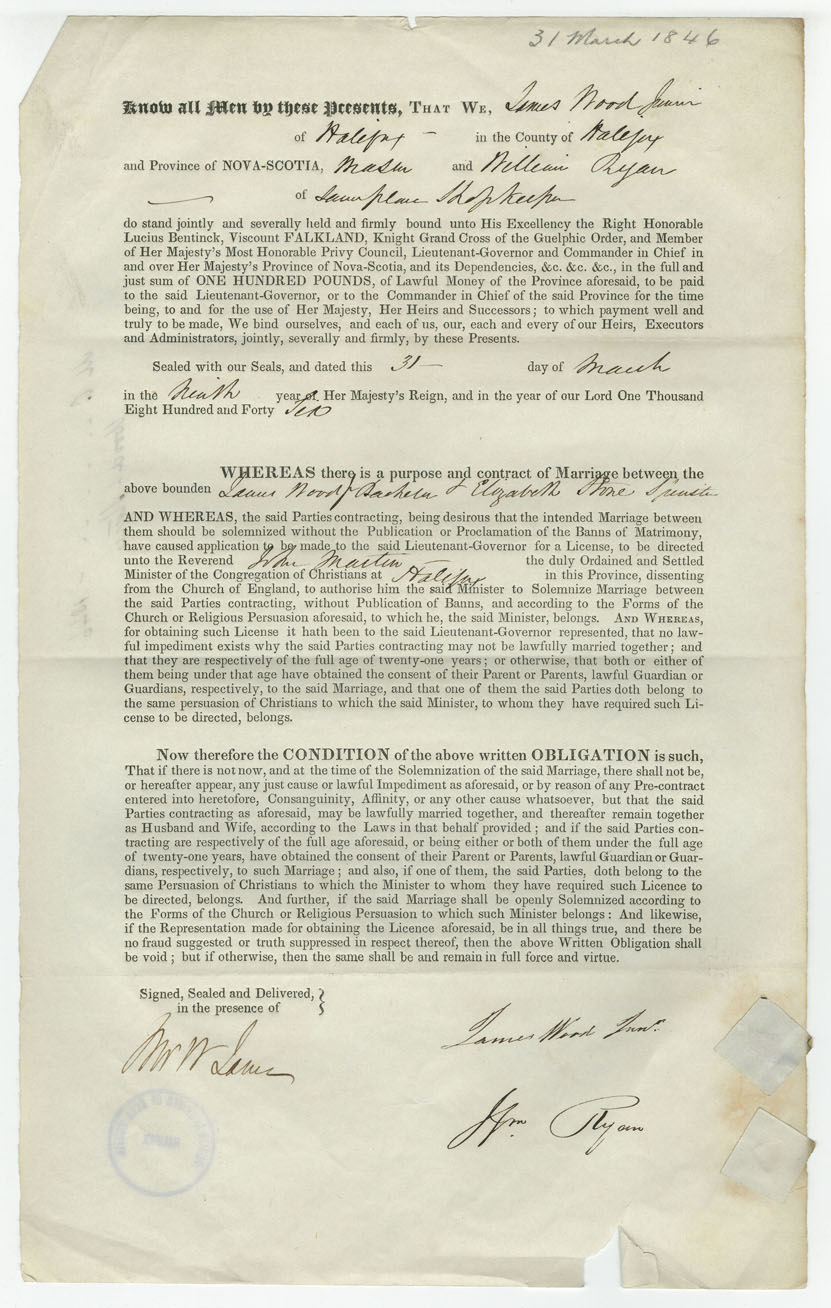 31 March 1846
Know all Men by these Presents, THAT WE, James Wood Junior
of Halifax – in the County of Halifax
and Province of NOVA-SCOTIA, and William Ryan
— of Same place Shopkeeper
do stand jointly and severally held and firmly bound unto His Excellency the Right Honorable
Lucius Bentinck, Viscount FALKLAND, Knight Grand Cross of the Guelphic Order, and Member
of Her Majesty's Most Honorable Privy Council, Lieutenant-Governor and Commander in Chief in
and over Her Majesty's Province of Nova-Scotia, and its Dependencies, &c. &c. &c., in the full and
just sum of ONE HUNDRED POUNDS, of Lawful Money of the Province aforesaid, to be paid
to the said Lieutenant-Governor, or to the Commander in Chief of the said Province for the time
being, to and for the use of Her Majesty, Her Heirs and Successors; to which payment well and
truly to be made, We bind ourselves, and each of us, our, each and every of our Heirs, Executors
and Administrators, jointly, severally and firmly, by these Presents.
Sealed with our Seals, and dated this 31 — day of March
in the Ninth year of Her Majesty's Reign, and in the year of our Lord One Thousand
Eight Hundred and Forty Six
WHEREAS there is a purpose and contract of Marriage between the
above bounden James Wood Jr Bachelor & Elizabeth Stone Spinster
AND WHEREAS, the said Parties contracting, being desirous that the intended Marriage between
them should be solemnized without the Publication or Proclamation of the Banns of Matrimony,
have caused application to be made to the said Lieutenant-Governor for a License, to be directed
unto the Reverend John Martin the duly Ordained and Settled
Minister of the Congregation of Christians at Halifax in this Province, dissenting
from the Church of England, to authorise him the said Minister to Solemnize Marriage between
the said Parties contracting, without Publication of Banns, and according to the Forms of the
Church or Religious Persuasion aforesaid, to which he, the said Minister, belongs. AND WHEREAS,
for obtaining such License it hath been to the said Lieutenant-Governor represented, that no law-
ful impediment exists why the said Parties contracting may not be lawfully married together; and
that they are respectively of the full age of twenty-one years; or otherwise, that both or either of
them being under that age have obtained the consent of their Parent or Parents, lawful Guardian or
Guardians, respectively, to the said Marriage, and that one of them the said Parties doth belong to
the same persuasion of Christians to which the said Minister, to whom they have required such Li-
cense to be directed, belongs.
Now therefore the CONDITION of the above written OBLIGATION is such,
That if there is not now, and at the time of the Solemnization of the said Marriage, there shall not be,
or hereafter appear, any just cause or lawful Impediment as aforesaid, or by reason of any Pre-contract
entered into heretofore, Consanguinity, Affinity, or any other cause whatsoever, but that the said
Parties contracting as aforesaid, may be lawfully married together, and thereafter remain together
as Husband and Wife, according to the Laws in that behalf provided; and if the said Parties con-
tracting are respectively of the full age aforesaid, or being either or both of them under the full age
of twenty-one years, have obtained the consent of their Parent or Parents, lawful Guardian or Guar-
dians, respectively, to such Marriage; and also, if one of them, the said Parties, doth belong to the
same Persuasion of Christians to which the Minister to whom they have required such Licence to
be directed, belongs. And further, if the said Marriage shall be openly Solemnized according to
the Forms of the Church or Religious Persuasion to which such Minister belongs: And likewise,
if the Representation made for obtaining the Licence aforesaid, be in all things true, and there be
no fraud suggested or truth suppressed in respect thereof, then the above Written Obligation shall
be void; but if otherwise, then the same shall be and remain in full force and virtue.
Signed, Sealed and Delivered,
in the presence of
James Wood Junr.
James
Wm Ryan